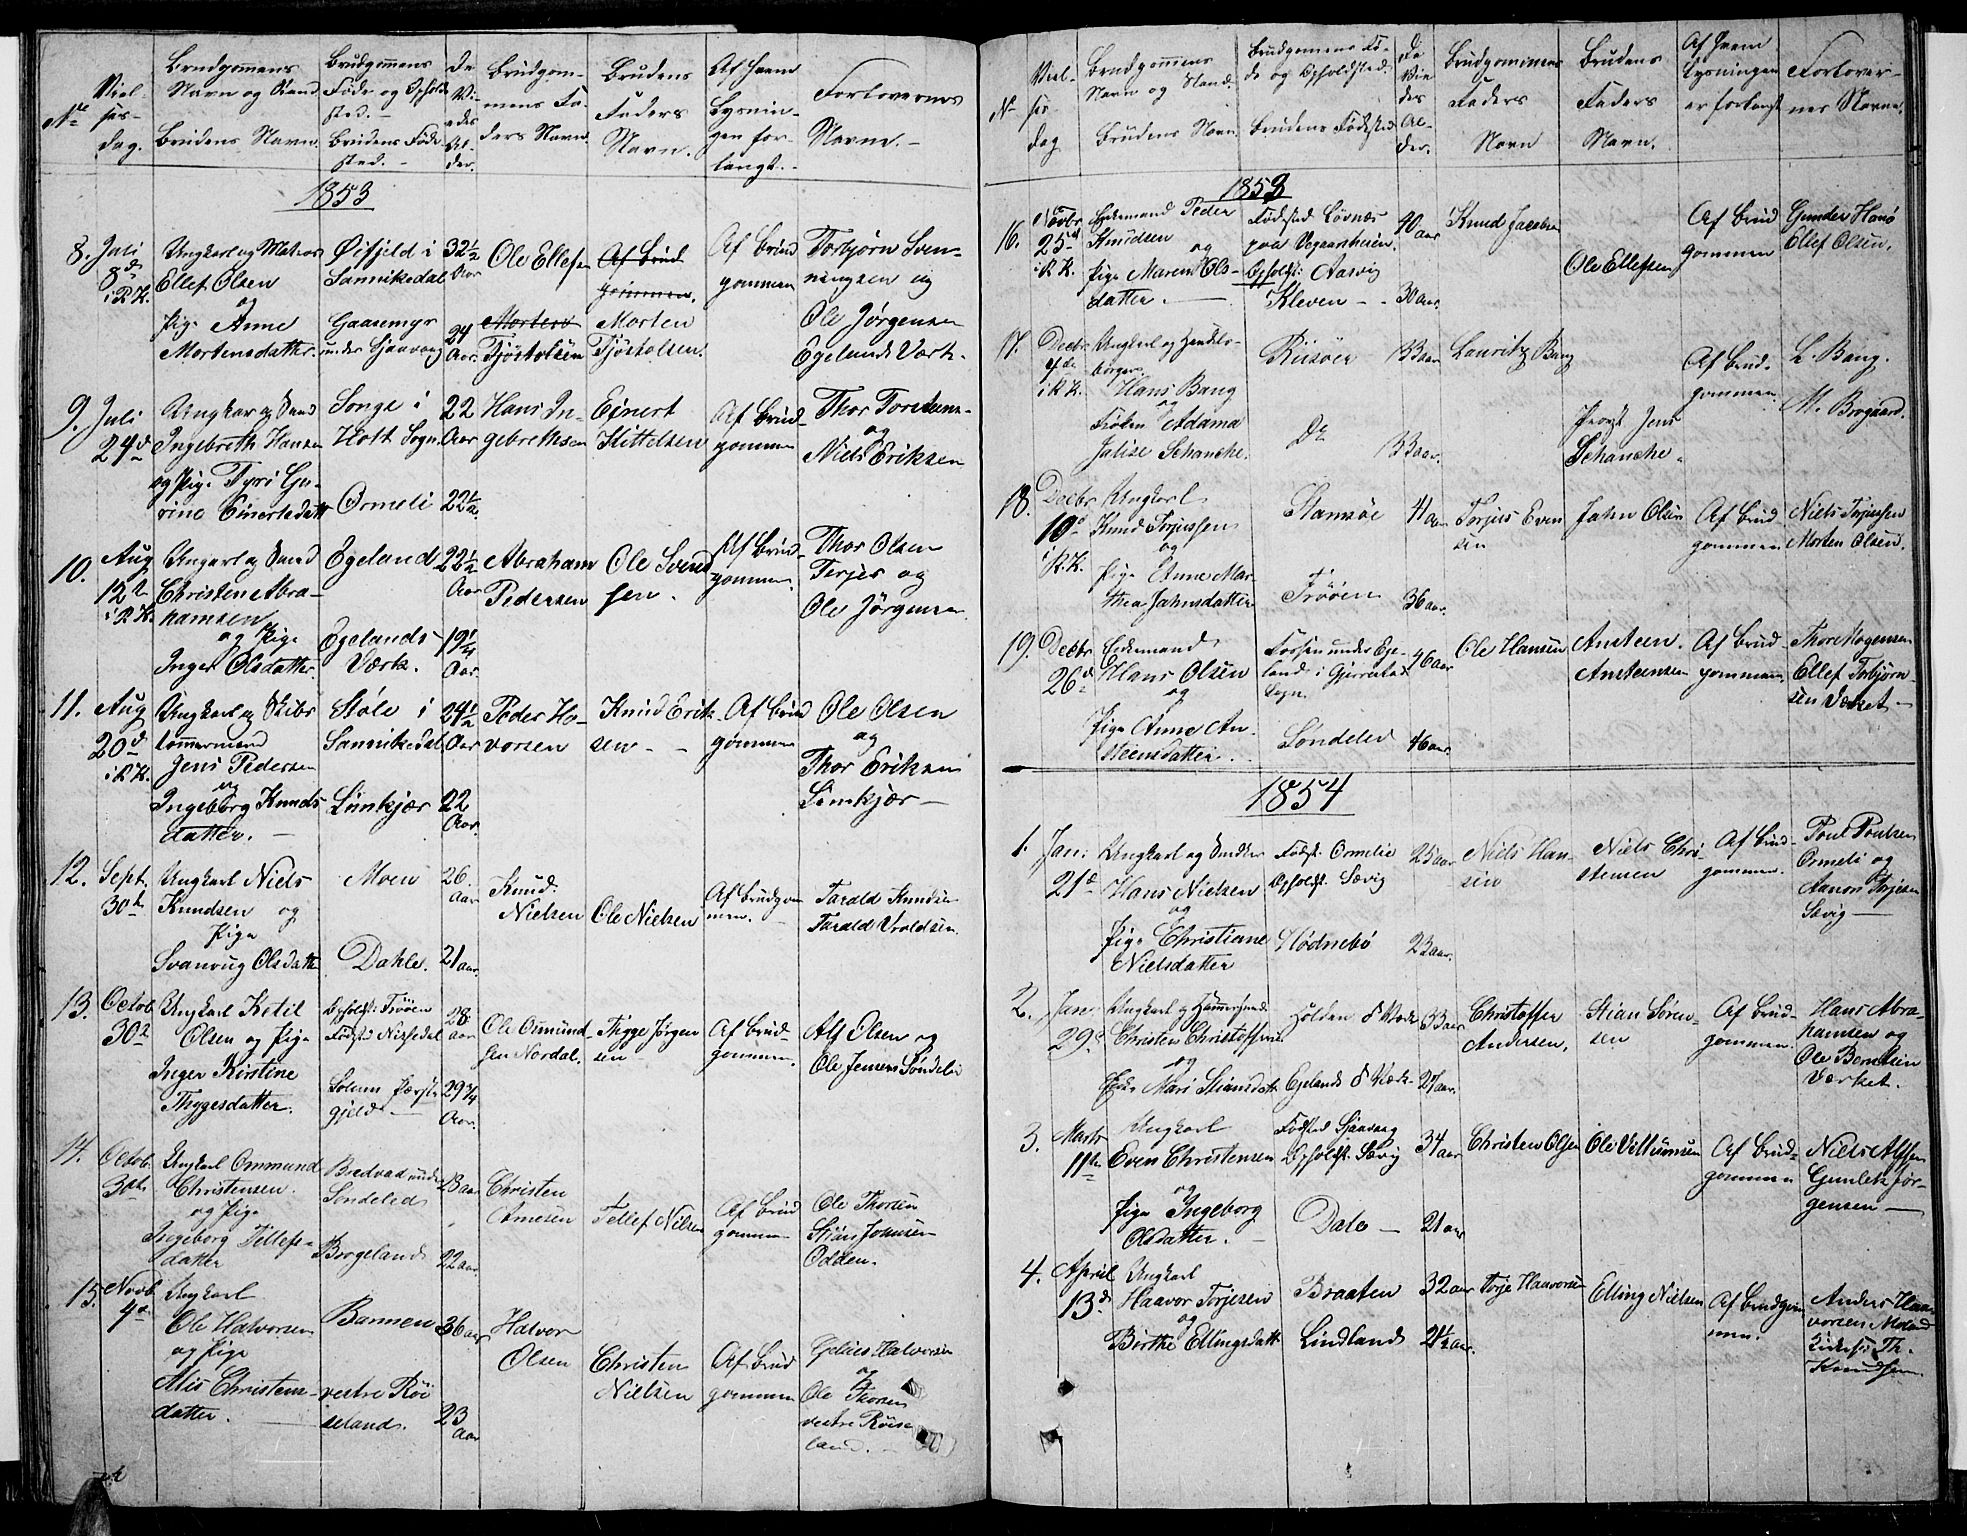 No
Viel-
ses-
dag.
Brudgommens
Navn og Stand
Brudens Navn.
Brudgommens
Føde og Opholds
sted. -
Brudens Føde
sted. -
De
Vi
edes
Al-
der.
Brudgom-
mens Fa-
ders Navn.
Brudens
Faders
Navn.
Af hvem
Lysnin-
gen for-
langt. -
Forlovernes
Navne. -
1853
8. Juli
8de
i R. K.
Ungkarl og Matros
Ellef Olsen
og
Pige Anne
Mortensdatter.
Øifjeld i
Sannikedal
Gaasemyr
under Sjaavaag
32½
Aar
24
Aar.
Ole Ellefsen
Morten
Tjøstolsen
Af Brud
gommen.
Morten
Tjøstolsen.
Af Brud
gommen
Torbjørn Sven-
ningsen og
Ole Jørgensen
Egelands Værk.
9. Juli
24de
Ungkar og Smed
Ingebreth Hansen
og Pige Tyri Gu-
rine Einertsdatt
Songe i
Holt Sogn
Ormeli
22
Aar
22½
a.
Hans In-
gebrethsen
Einert
Kittelsen
Af Brud-
gommen
Thor Torstens-
og
Niels Eriksen
10. Aug
12te
i R. K.
Ungkarl og Smed
Christen Abra-
hamsen
og Pige
Inger Olsdatter.
Egeland
Egelands-
Værk.
22½
Aar
19¼
Aar.
Abraham
Pedersen
Ole Svend
sen.
Af Brud-
gommen
Thor Olsen
Terjes og
Ole Jørgensen
11. Aug
20de
i R. K.
Ungkarl og Skibs
tømmermand
Jens Pedersen
og
Ingeborg Knuds
datter. -
Støle i
Sannikedal
Limkjær
24½
Aar
22
Aar.
Peder Ho-
vorsen
Knud Erik
sen -
Af Brud
gommen
Ole Olsen
og
Thor Eriksen
Limkjær -
12. Sept.
30te
Ungkarl Niels
Knudsen og
Pige
Svanaug Olsdatt
Moen
Dahle.
26.
Aar
21 aar.
Knud
Nielsen
Ole Nielsen
Af Brudgom
men. -
Tarald Knudsen
Tarald Uroldsen.
13. Octob.
30te
Ungkarl Ketil
Olsen og Pige
Inger Kirstine
Thygesdatter.
Opholdst: Trøen
Fødst: Nissedal
Solum Præste
gjeld -
28
aar
29¾
Aar.
Ole Osmund
sen Nordal.
Tygge Jørgen
sen -
Af Brud-
gommen.
Alf Olsen og
Ole Jensen Søndeled
14. Octob.
30te
Ungkarl Ommund
Christensen.
og Pige
Ingeborg Tellefs-
datter
Bredvad under
Søndeled
Borgeland
28 aar
22 aar.
Christen
Amesen
Tellef Nilsen
Af Brud
gommen
Ole Thorsen
Stian Johnsen
Odden.
15. Novb
4de
Ungkarl
Ole Halvorsen
og Pige
Alis Christens-
datter.
Bannen
vestre Røi
seland.
36 aar
23
Aar
Halvor
Olsen
Christen
Nielsen
Af Brud
gommen
Gjelius Halvorsen
og
Ole Thorsen
vestre Røise
land. -
No
Viel-
ses
dag
Brudgommens
Navn og Stand.
Brudens Navn.
Brudgommens Fø-
de og Opholdssted.
Brudens Fødested
De
Vie
des
Al-
der.
Brudgommens
Faders
Navn
Brudens
Faders
Navn.
Af hvem
Lysningen
er forlangt
Forlover-
nes Navne.
1853
16. Novbr
25de
i R. K.
Enkemand Peder
Knudsen
og
Pige Maren Ols-
datter. -
Fødested Løvnæs
paa Vegaarsheien
Opholdst: Aasvig
Kleven -
40
aar
30 aar.
Knud Jacobsen
Ole Ellefsen
Af Brud
gommen
Gunder Hansø
Ellef Olsen.
17. Decbr
4de
i R. K.
Ungkarl og Handels-
borger
Hans Bang
og
Frøken Adama
Jalise Schanche.
Risøer
Do
33 aar
33 aar.
Lauritz Bang
Provst Jens
Schanche.
Af Brud-
gommen.
L. Bang.
M. Brogaard.
18. Decbr
10de
i R. K.
Ungkarl
Knud Torjussen
og
Pige Anne Mar-
thea Jahnsdatter
Stamsøe
Trøen
41 aar
36 aar.
Torjus Even
sen
Jahn Olsen
Af Brud
gommen
Niels Torjussen
Morten Olsen.
19. Decbr
26de
Enkemand
Hans Olsen
og
Pige Anne An-
steensdatter.
Fossen under Ege-
land i Gjerrestad
Sogn.
Søndeled
46 aar
46 aar.
Ole Hansen
Ansteen.
Ansteensen
Af Brud
gommen
Thore Mogensen
Ellef Torbjørn-
sen Værket -
1854
1. Jan:
21de
Ungkarl og Snedker
Hans Nielsen
og
Pige Christiane
Nielsdatter
Fødst: Ormelie
Opholdst: Sævig
Hødnebø
25 aar
23 aar.
Niels Han-
sen
Niels Chri-
stensen
Af Brud-
gommen.
Poul Poulsen
Ormeli og
Aanon Terjesen
Sævig -
2. Jan:
29de
Ungkarl og Hammersmed
Christen Christoffersen
og
Enke Mari Stiansdatt
Holden S Værk
Egelands S Værk.
33 aar
27 aar.
Christoffer
Andersen,
Stian Søren-
sen
Af Brud-
gommen.
Hans Abra-
hamsen og
Ole Berntsen
Værket.
3. Marts
11te
Ungkarl
Even Christensen
og
Pige Ingeborg
Olsdatter. -
Fødsted Sjaavaag
Opholdst: Sævig
Dale -
34 aar
21 aar
Christen Olsen
Ole Villumsen
Af Brud-
gommen
Niels Alfsen
Gunlek Jør-
gensen -
4. April
13de
Ungkarl
Haavor Torjesen
og
Birthe Ellingsdatt
Braaten
Lindland
32 aar
21½ aar.
Torje Haavorsen
Elling Nielsen
Af Brudgom
men.
Anders Haa-
vorsen Moland
Th.
Knudsen